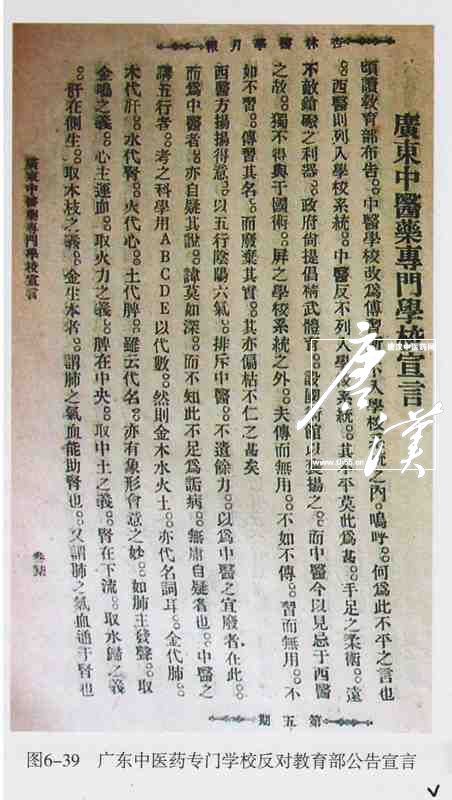 杏林醫學月報
廣東中醫藥專門學校宣言
頃讀教育部布告。中醫學校改爲傳習所。不入學校系統之內。嗚呼。何爲此不平之言也
。西醫則列入學校系統。中醫反不列入學校系統。其不平莫此爲甚。手足之柔術。遠
不敵鎗礮之利器。政府尙提倡精武體育。設國術館以表揚之。而中醫今以見忌于西醫
之故。獨不得與于國術。屏之學校系統之外。夫傳而無用。不如不傳。習而無用。不
如不習。傳習其名。而廢棄其實。其亦偏枯不仁之甚矣
西醫方揚揚得意。以五行陰陽六氣。排斥中醫。不遺餘力。以爲中醫之宜廢者在此。
而爲中醫者。亦自疑其說。諱莫如深。而不知此不足爲詬病。無庸自疑者也。中醫之
講五行者。考之科學用ABCDE以代數。然則金木水火土。亦代名詞耳。金代肺。
木代肝。水代腎。火代心。土代脾。雖云代名。亦有象形會意之妙。如肺主發聲。取
金鳴之義。心主運血。取火力之義。脾在中央。取中土之義。腎在下流。取水歸之義
。肝在側生。取木枝之義。金生本者。謂肺之氣血能助腎也。又謂肺之氣血通于腎也
廣東中醫藥專門學校宣言
第五期
图6-39 广东中医药专门学校反对教育部公告宣言